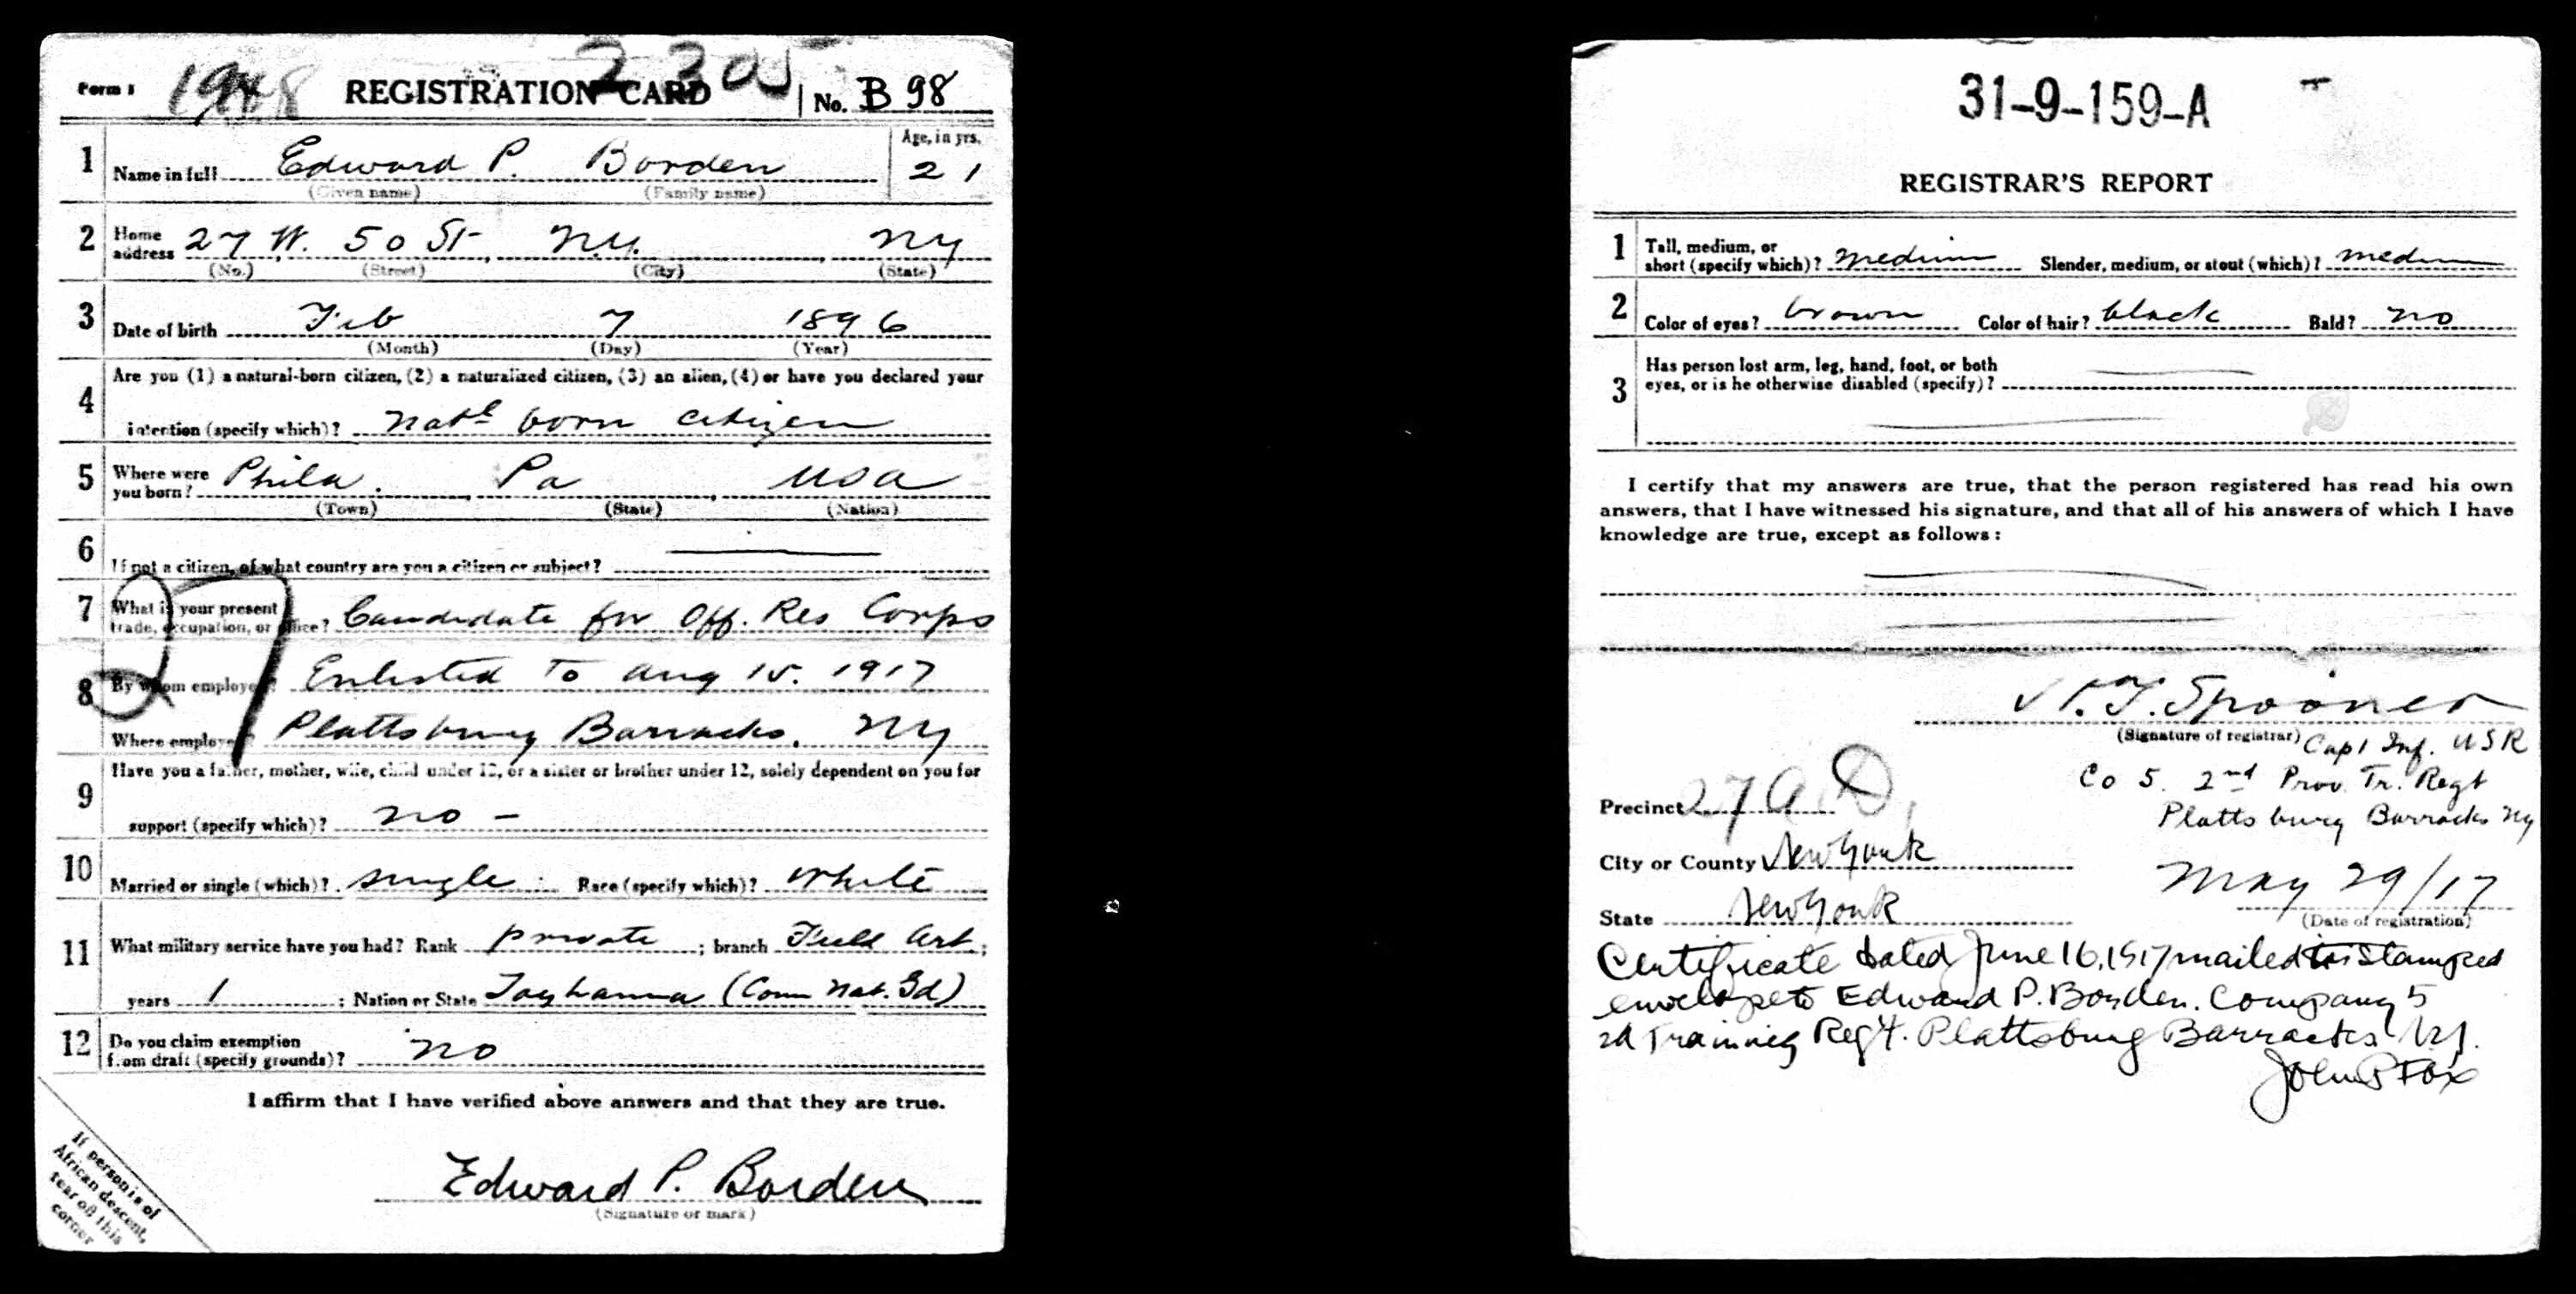 Form 1 REGISTRATION CARD No. B 98
1 Name in full Edward P. Borden Age, in yrs. 21
(Given name) (Family name)
2 Home address 27 W. 50 St N.Y. NY
(No.) (Street) (City) (State)
3 Date of birth Feb 7 1896
(Month) (Day) (Year)
4 Are you (1) a natural-born citizen, (2) a naturalized citizen, (3) an alien, (4) or have you declared your
intention (specify which)? Natl born citizen
5 Where were you born? Phila. Pa USA
(Town) (State) (Nation)
6 If not a citizen, of what country are you a citizen or subject?
7 What is your present trade, occupation, or office? Candidate for Off. Res Corps
27
8 By whom employed? Enlisted to Aug 15. 1917
Where employed? Plattsburg Barracks, NY
9 Have you a father, mother, wife, child under 12, or a sister or brother under 12, solely dependent on you for
support (specify which)? no -
10 Married or single (which)? single Race (specify which)? White
11 What military service have you had? Rank private ; branch Field Art ;
years 1 ; Nation or State Toyhanna (Conn Nat. Gd)
12 Do you claim exemption
from draft (specify grounds)? no
I affirm that I have verified above answers and that they are true.
Edward P. Borden
(Signature or mark)
If person is of
African descent,
tear off this
corner
31-9-159-A
REGISTRAR'S REPORT
1 Tall, medium, or
short (specify which)? medium Slender, medium, or stout (which)? medium
2 Color of eyes? brown Color of hair? black Bald? no
3 Has person lost arm, leg, hand, foot, or both
eyes, or is he otherwise disabled (specify)?
I certify that my answers are true, that the person registered has read his own
answers, that I have witnessed his signature, and that all of his answers of which I have
knowledge are true, except as follows:
Spooner
(Signature of registrar) Capt Inf. USR
Co 5. 2nd Prov. Tr. Regt
Precinct 27 A D.
Plattsburg Barracks NY
City or County New York
May 29/17
State New York
(Date of registration)
Certificate dated June 16, 1917 mailed in stamped
envelope to Edward P. Borden. Company 5
2d Training Reg't. Plattsburg Barracks N.Y.
John P Fox